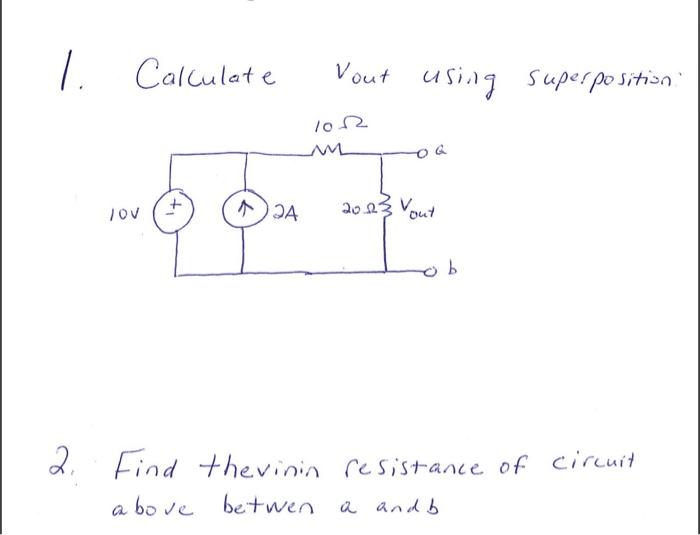 1. Calculate Vout using superposition:
10Ω
a
10V + - 2A 20Ω Vout
b
2. Find thevinin resistance of circuit
above betwen a and b